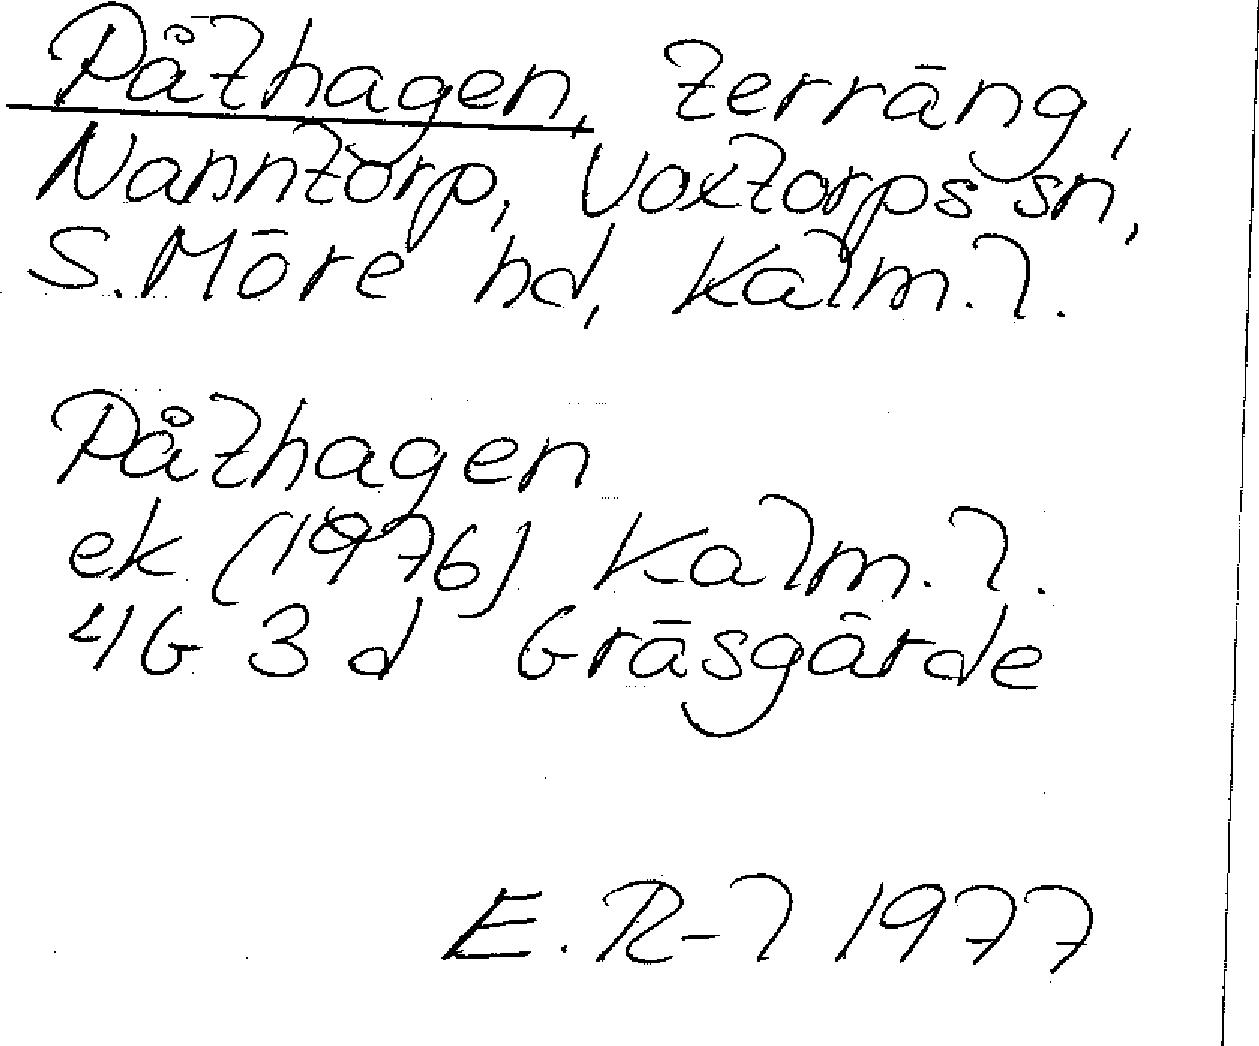 Påthagen, terräng,
Nanntorp, Voxtorps sn,
S. Möre hd, Kalm. l.
Påthagen
ek (1976) Kalm. l.
4G 3 d Gräsgårde
E. R-l 1977